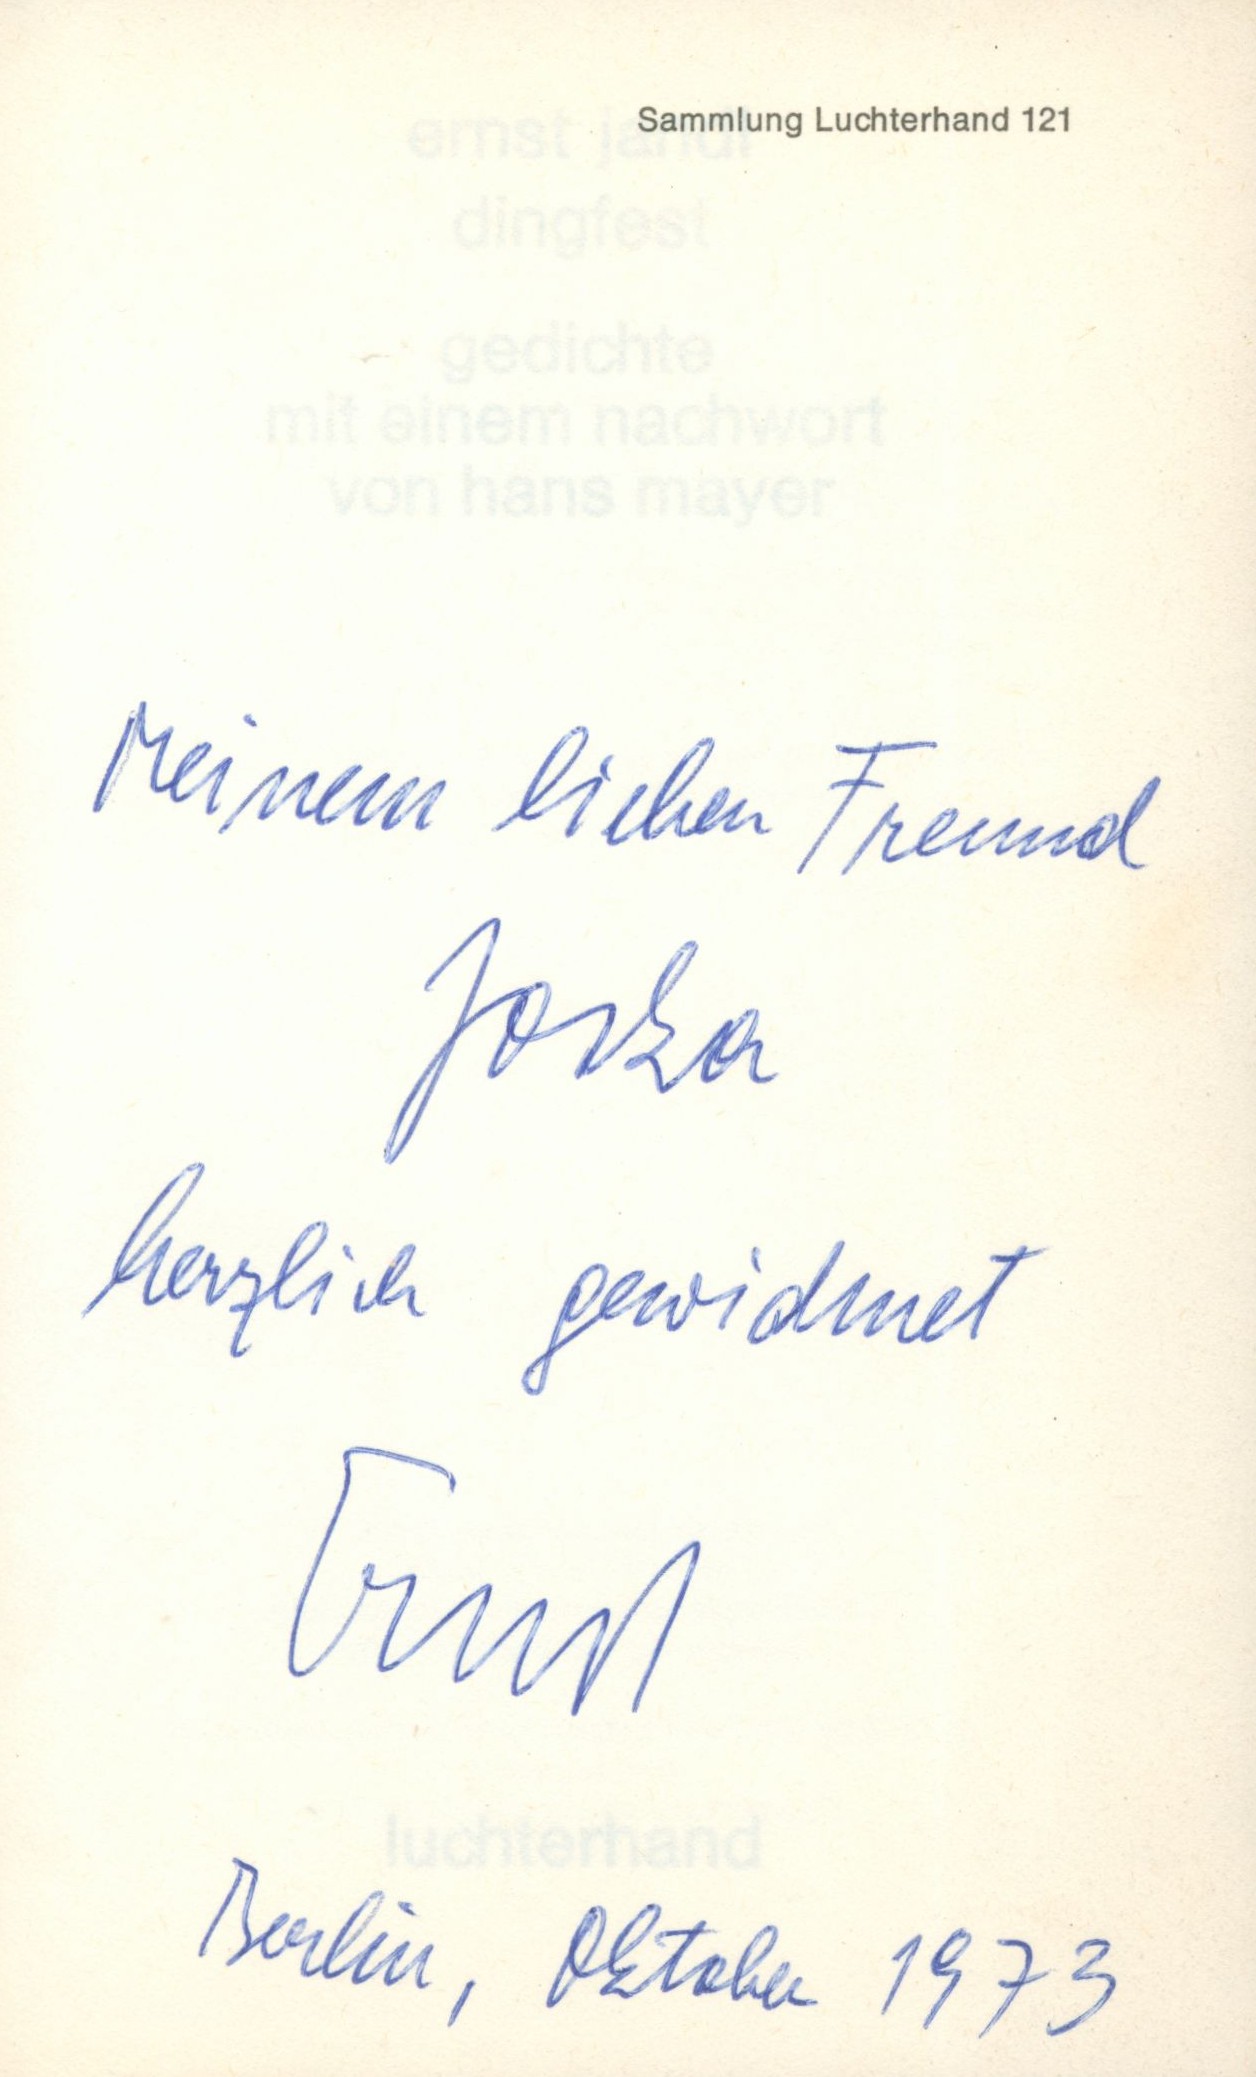 Sammlung Luchterhand 121
ernst jandl
dingfest
gedichte
mit einem nachwort
von hans mayer
Meinem lieben Freund
Joska
herzlich gewidmet
Ernst
luchterhand
Berlin, Oktober 1973